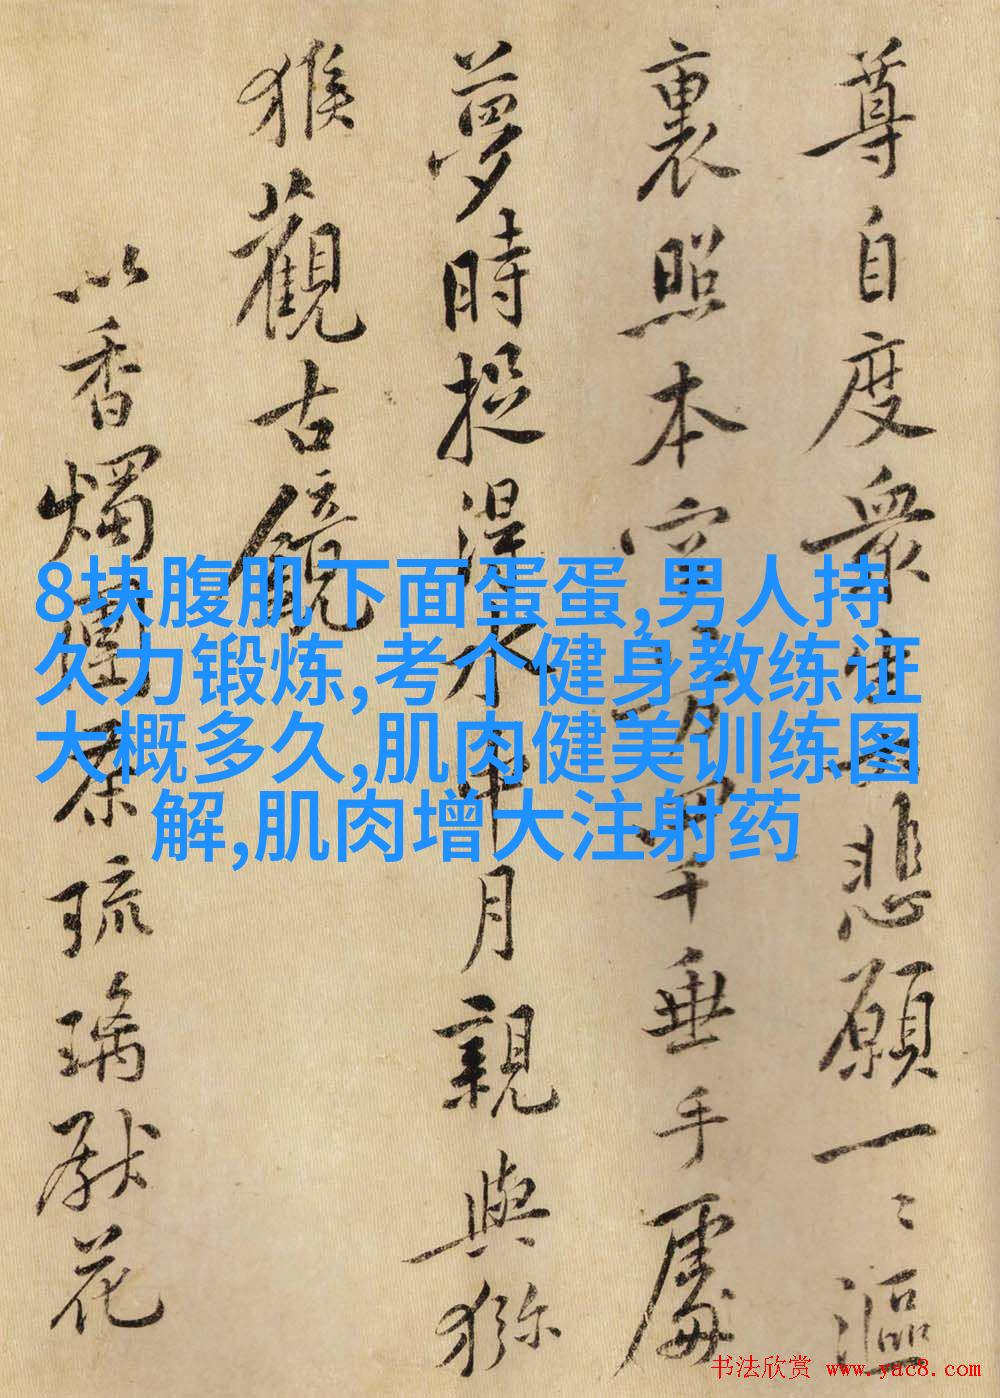 尊自度衆生悲願一〻漚
裏照本千垂手處
夢時捉得水中月親與獼
猴觀古鏡
以香燭團茶琉璃獻花
8块腹肌下面蛋蛋,男人持
久力锻炼,考个健身教练证
大概多久,肌肉健美训练图
解,肌肉增大注射药
书法欣赏 www.yac8.com